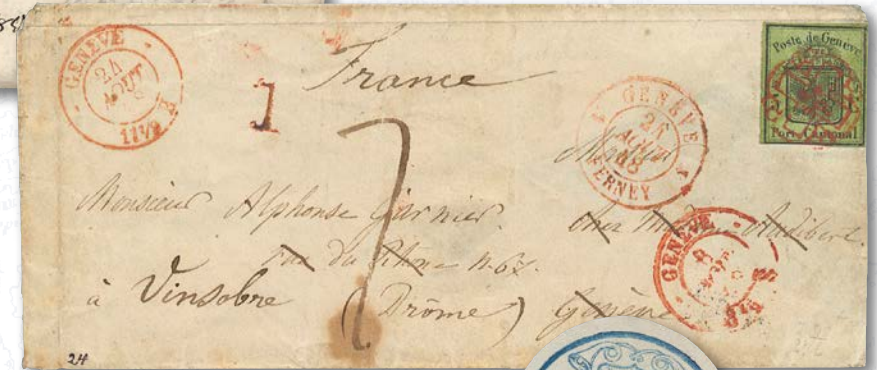 GENEVE
24
AOUT
11½
France
1
7
GENEVE
24
AOUT
48
FERNEY
Poste de Genève
Port Cantonal
Monsieur Alphonse Garnier.
chez Audibert.
rue du Rhône n. 67.
à Vinsobre (Drôme) Genève
GENEVE
24